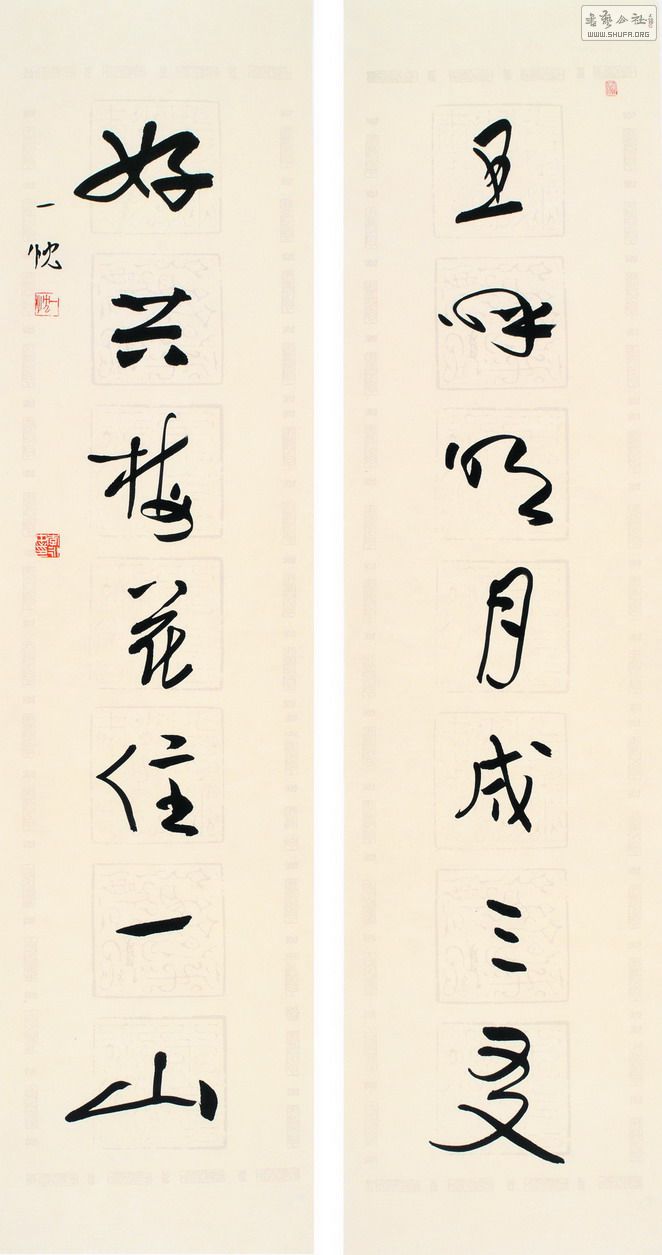 书艺公社
WWW.SHUFA.ORG
且呼明月成三友
好共梅花住一山
一忱